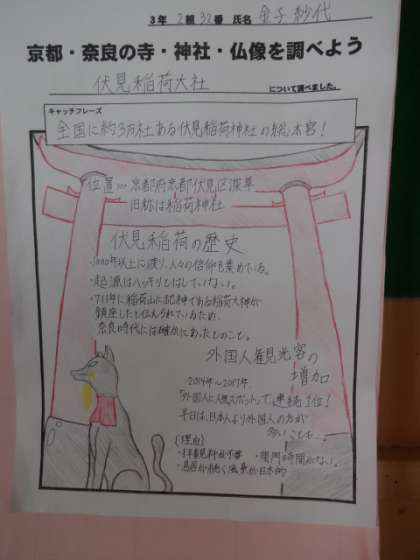 3年 2組 32番 氏名 金子 紗代
京都・奈良の寺・神社・仏像を調べよう
伏見稲荷大社 について調べました。
キャッチフレーズ
全国に約3万社ある伏見稲荷神社の総本宮!
位置…京都府京都伏見区深草
旧称は稲荷神社
伏見稲荷の歴史
・1000年以上に渡り、人々の信仰を集めている。
・起源はハッキリとはしていない。
・711年に稲荷山に祀神である稲荷大神が
鎮座したと伝えられているため、
奈良時代には確かにあったとのこと。
外国人観光客の
増加
2014年~2017年
「外国人に人気スポット」って、連続1位!
平日は、日本人より外国人の方が
多いことも…。
(理由)
・拝観料が不要 ・閉門時間がない。
・鳥居が続く風景が日本的